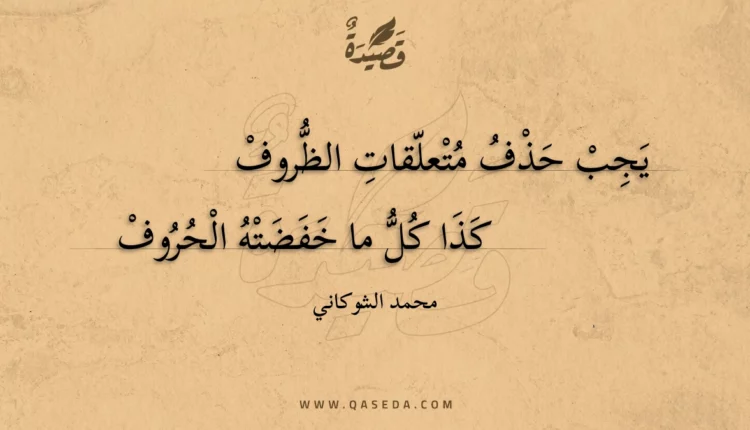 قَصِيْدَةٌ
يَجِبْ حَذْفُ مُتْعلّقاتِ الظُّروفْ
كَذَا كُلُّ ما خَفَضَتْهُ الْحُرُوفْ
محمد الشوكاني
WWW.QASEDA.COM